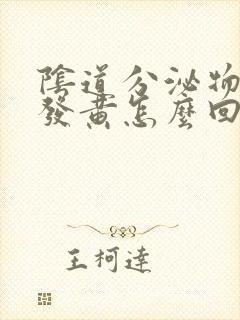 陰道分泌物
發黃怎麼回
王柯達